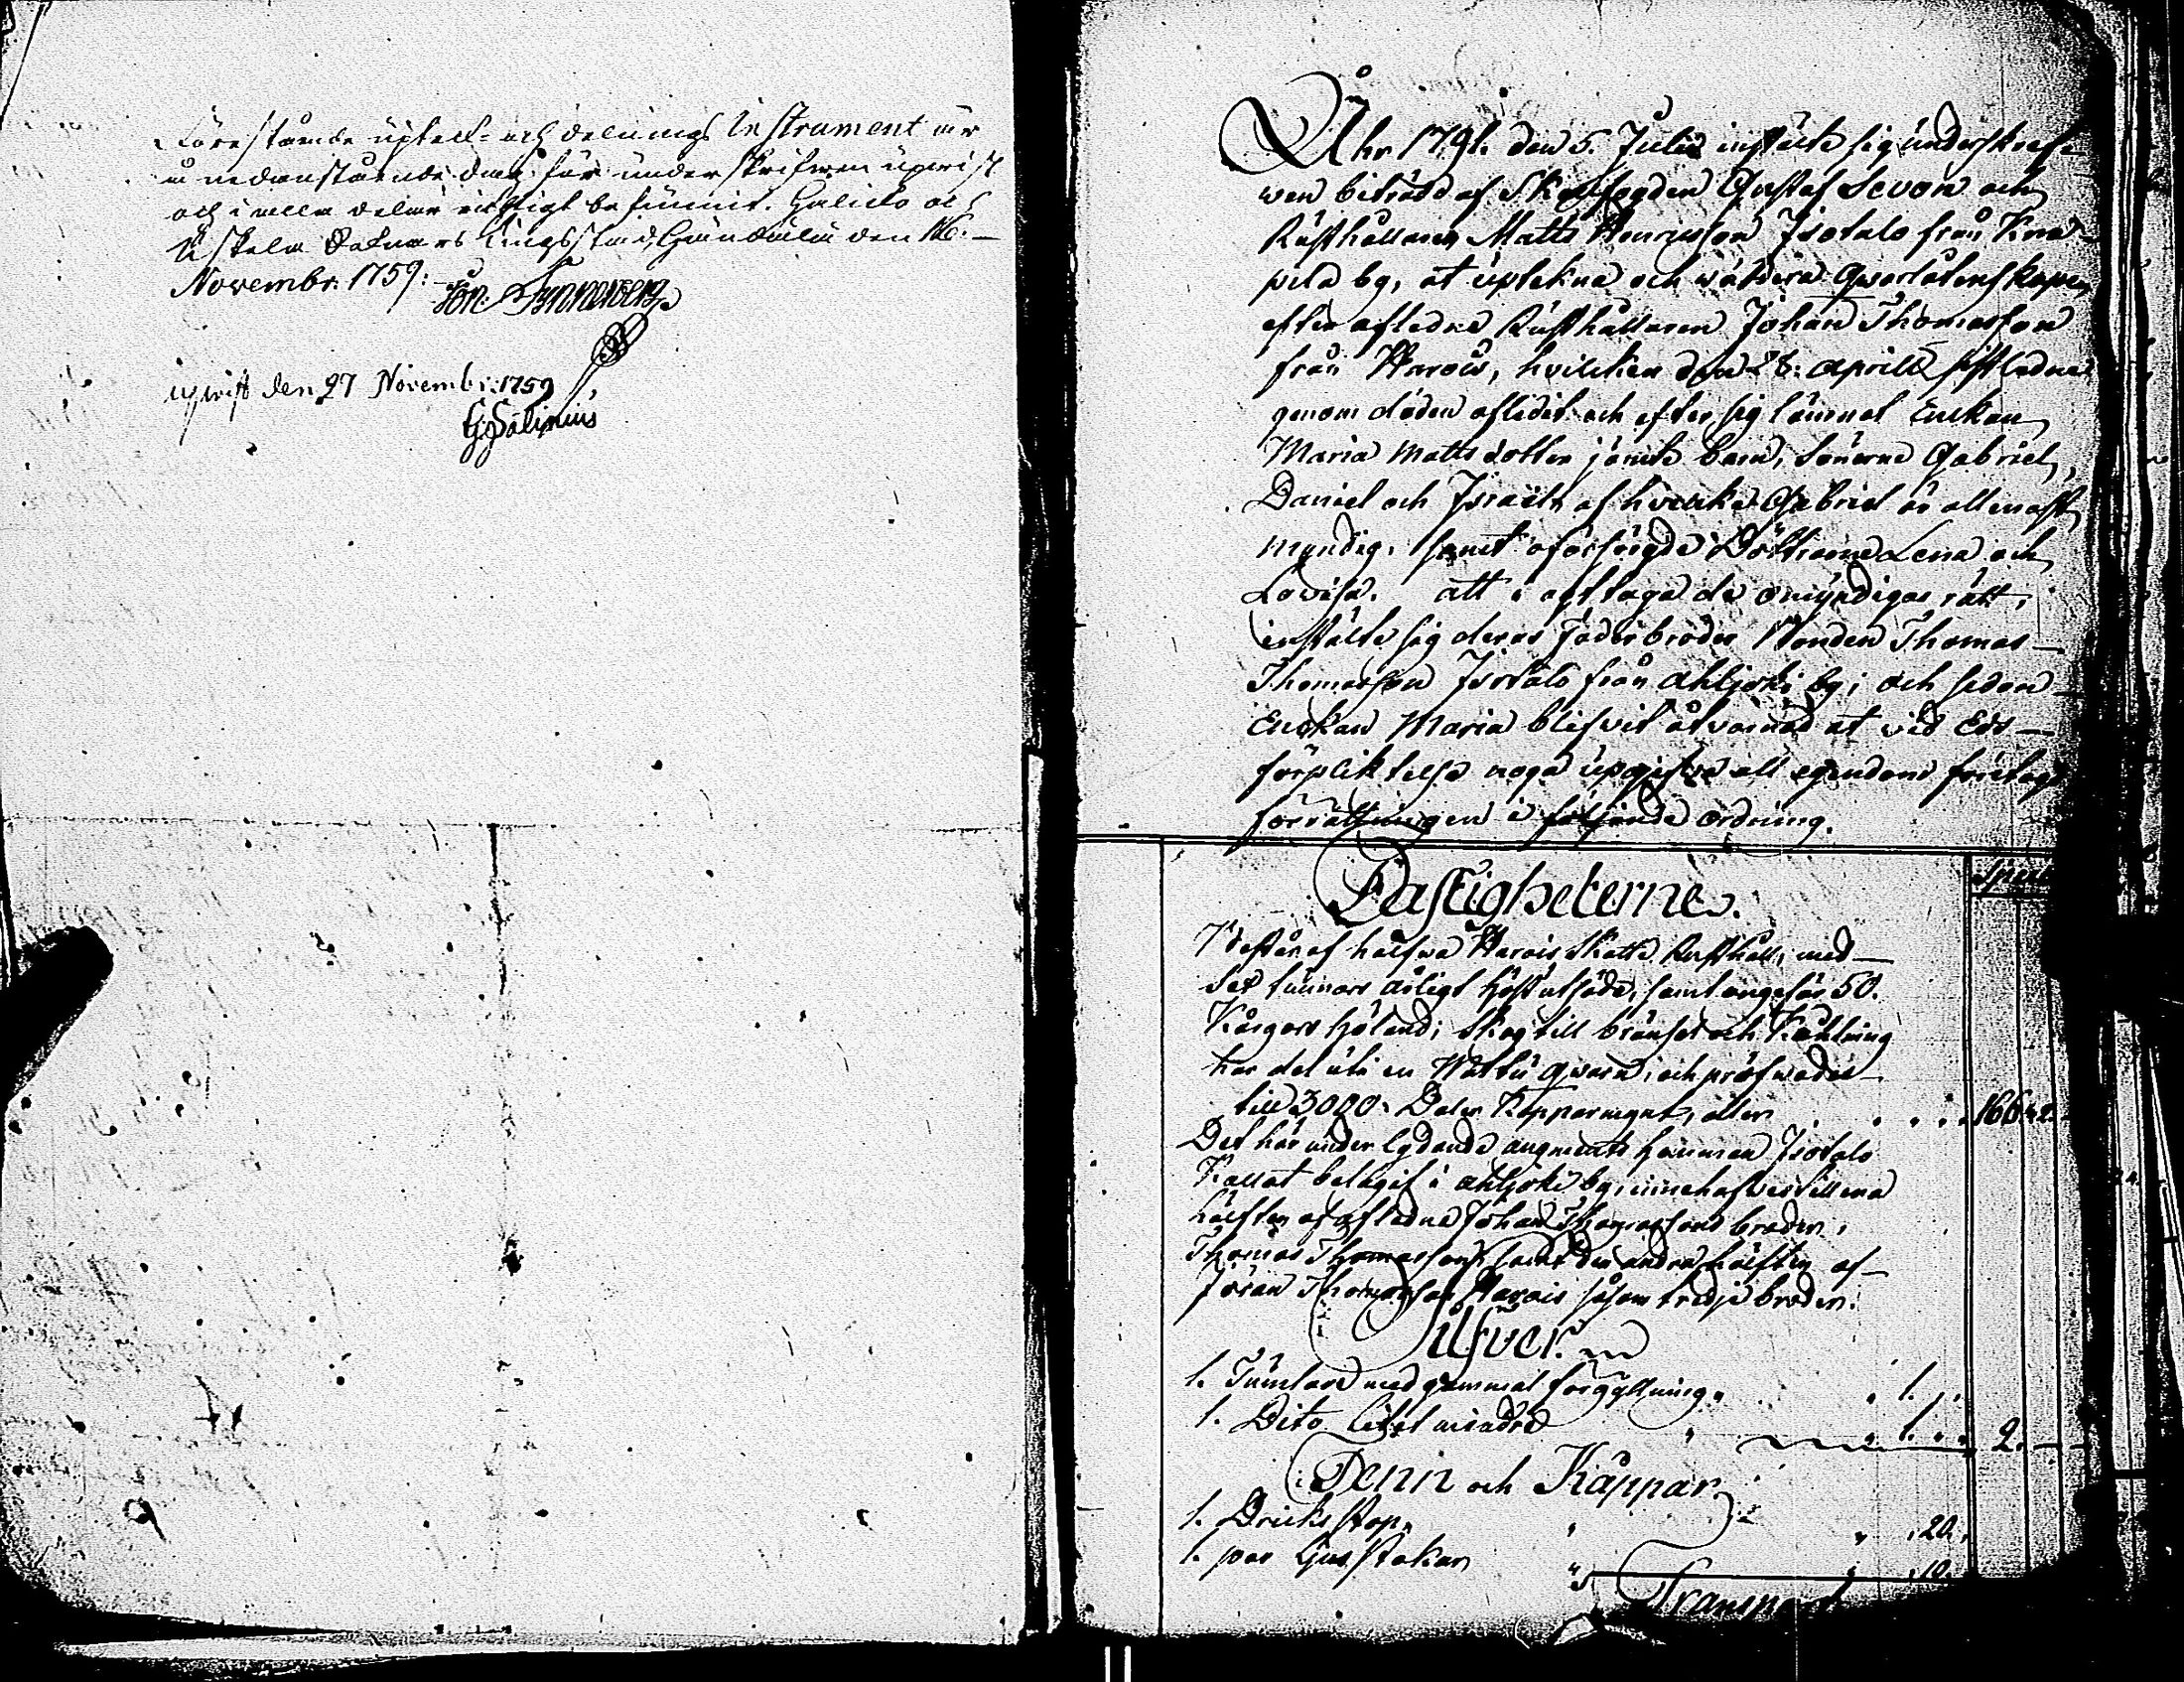 Förestående uptekn= och delnings Instrument är
å nedanstående dag för underskrifwen upwist
och i alla delar richtigt befunnit. Halicko och
Uskela Sokners tingsstad, den 16.
Novembr: 1759:
upwist den 27 Novembr: 1759
G: Salinius
Åhr 1791. den 5. Julii instälte sig underskref-
wen biträdd af Skogfogden Gustaf Sevon och
Rusthållaren Matts Henricsson Isotalo från
pila by, at uptekna och wärdera qwarlåtenskapen
efter afledne Rusthållaren Johan Thomasson
från Warois, hvilcken den 28: Aprill sistledne
genom döden aflidit och efter sig lämnat Enckan
Maria Mattsdotter jämte barn, Sönerne Gabriel,
Daniel och Israel, af hvilka Gabriel är allenast
myndig, samt oförsörgde Döttrarne Lena och
Lovisa. att i akttaga de omyndigas rätt,
instälte sig deras Faderbroder Bonden Thomas
Thomasson Isotalo från Ahljoki by; och sedan
Enckan Maria blifvit åtvarnad at vid Eds
förplicktelse noga upgifva all egendom företogs
förrättningen i följande ordning.
Fastigheterne.
Består af halfwa Warois Skatte Rusthåll, med
Sex tunnors årligt höst utsäde, samt ungefär 50.
Kårgars höland; Skog till bränsel och
har del uti en Wattu qwarn; och
till 3000 Daler Kopparmynt, eller . . . 166.
Det här under lydande augments hemman Isotalo
Kallat belägit i Ahljoki by, innehafves till ena
hälften af aflidne Johan Thomassons broder,
Thomas Thomasson, samt den andra hälften af
Jöran Thomasson Warois såsom tredje broder.
Silfver.
1. Tumlare med gammal förgyllning. 1.
1. Dito litet mindre 1. 2.
Tenn och Kåppar.
1. Dricks stop. 20.
1. par Ljusstakar
Transport